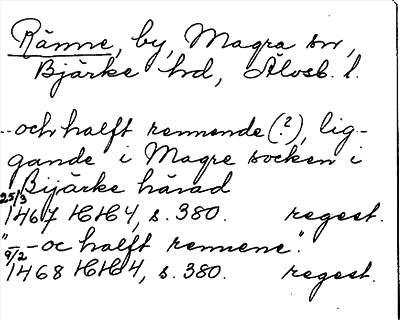 Ränne, by, Magra sn,
Bjärke hd, Älvsb. l.
-- och halft rennende (?), lig-
gande i Magre socken i
Bijärke härad
25/3 1467 HH 4, s. 380. regest.
"-- oc halft rennene".
9/2 1468 HH 4, s. 380. regest.